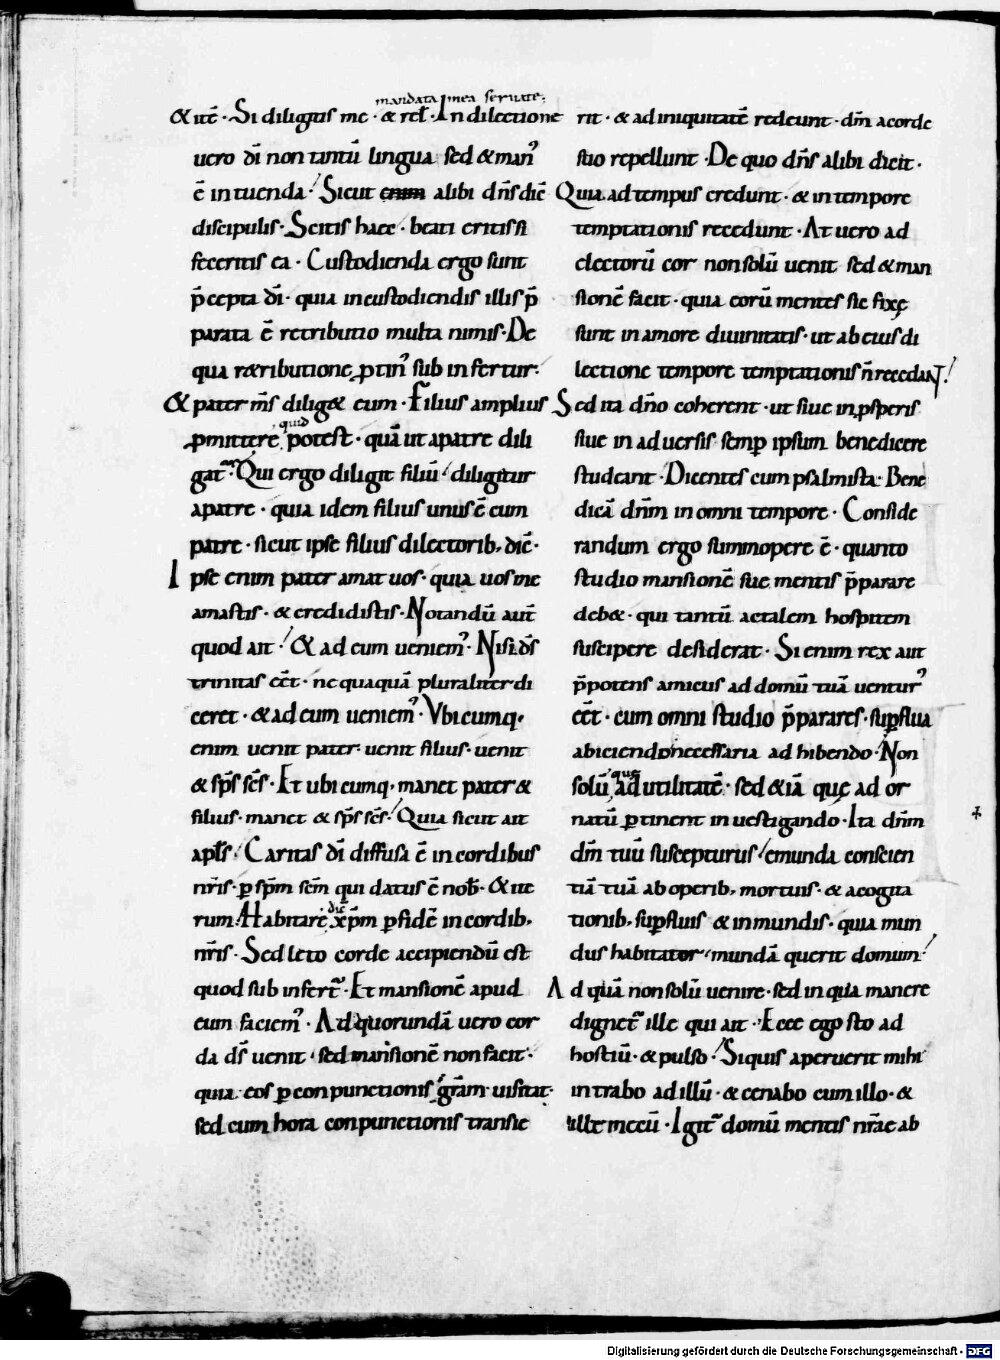 mandata mea seruate;
& itē · Si diligitis me · & rel̄ · In dilectione
uero dī non tantū lingua sed & man᾽
ē intuenda! Sicut enim alibi dn̄s dic̄
discipulis · Scitis haec · beati eritis si
feceritis ea · Custodienda ergo sunt
p̄cepta dī · quia in custodiendis illis p̄
parata ē retributio multa nimis · De
qua retributione ꝑtin᾽ sub infertur ·
& pater ms̄ diliget eum · Filius amplius
quid
ꝓmittere potest · quā ut a patre dili
gat᾽ · Qui ergo diligit filiū! diligitur
a patre · quia idem filius unus ē cum
patre · sicut ipse filius dilectorib; dic̄ ·
Ipse enim pater amat uos · quia uos me
amastis · & credidistis · Notandū aut̄
quod ait! & ad eum ueniem᾽ · Nisi ds̄
trinitas eēt · nequaquā pluraliter di
ceret · & ad eum ueniem᾽ · Vbicumq·
enim uenit pater · uenit filius · uenit
& sp̄s sc̄s · Et ubicumq · manet pater &
filius · manet & sp̄s sc̄s · Quia sicut ait
apl̄s! Caritas dī diffusa ē in cordibus
nr̄is · ꝑ sp̄m sc̄m qui datus ē nob̄ · & ite
dic̄
rum · Habitare xp̄m ꝑ fidē in cordib;
nr̄is · Sed leto corde accipiendū est
quod sub infert᾽ · Et mansionē apud
eum faciem᾽ · Ad quorundā uero cor
da ds̄ uenit · sed mansionē non facit ·
quia eos ꝑ conpunctionis grām uisitat ·
sed cum hora conpunctionis transie
rit · & ad iniquitatē redeunt · dm̄ a corde
suo repellunt · De quo dn̄s alibi dicit ·
Quia ad tempus credunt · & in tempore
temptationis recedunt · At uero ad
electorū cor non solū uenit sed & man
sionē facit · quia eorū mentes sic fixę
sunt in amore diuinitatis · ut ab eius di
lectione tempore temptationis n̄ recedaNT!
Sed ita dn̄o coherent · ut siue in ꝓsperis
siue in aduersis semꝑ ipsum benedicere
studeant · Dicentes cum psalmista · Bene
dicā dn̄m in omni tempore · Conside
randum ergo summopere ē · quanto
studio mansionē sue mentis p̄parare
debet · qui tantū ac talem hospitem
suscipere desiderat · Si enim rex aut
p̄potens amicus ad domū tuā uentur᾽
eēt · cum omni studio p̄parares · suꝑflua
abiciendo necessaria adhibendo · Non
quę
solū ad utilitatē · sed & iā que ad or
natū ꝑtinent inuestigando · Ita dn̄m
dm̄ tuū suscepturus! emunda conscien
tiā tuā ab operib; mortuis · & a cogita
tionib; suꝑfluis & inmundis · quia mun
dus habitator! mundā querit domum!
Ad quā non solū uenire · sed in qua manere
dignet᾽ ille qui ait · Ecce ego sto ad
hostiū · & pulso! Siquis aperuerit mihi
intrabo ad illū · & cenabo cum illo · &
ille mecū · Igit᾽ domū mentis nr̄ae ab
Digitalisierung gefördert durch die Deutsche Forschungsgemeinschaft - DFG